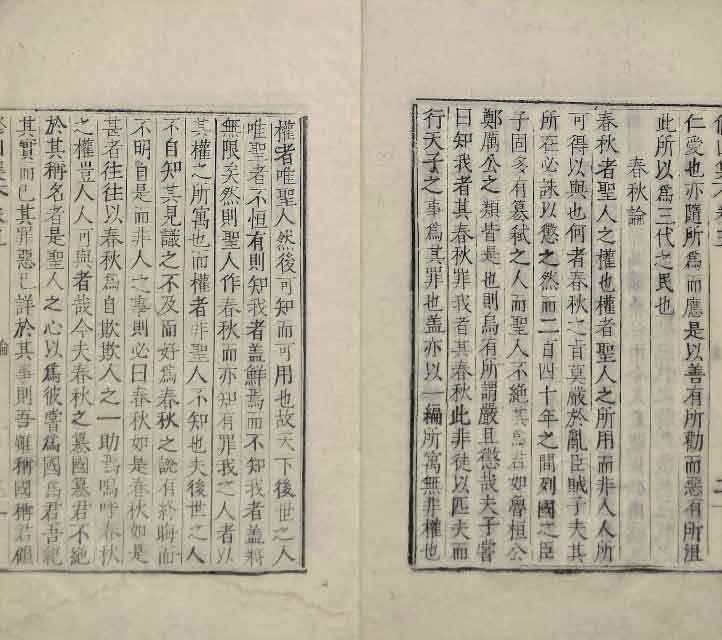 仁愛也亦隨所爲而應是以善有所勸而惡有所沮
此所以爲三代之民也
春秋論
春秋者聖人之權也權者聖人之所用而非人人所
可得以與也何者春秋之旨莫嚴於亂臣賊子夫其
所在必誅以懲之然而二百四十年之間列國之臣
子固多有簒弑之人而聖人不絶其爲君如魯桓公
鄭厲公之類皆是也則烏有所謂嚴且懲哉夫子嘗
曰知我者其春秋罪我者其春秋此非徒以匹夫而
行天子之事爲其罪也盖亦以一編所寓無非權也
權者唯聖人然後可知而可用也故天下後世之人
唯聖者不恒有則知我者盖鮮焉而不知我者盖將
無限矣然則聖人作春秋而亦知有罪我之人者以
其權之所寓也而權者非聖人不知也夫後世之人
不自知其見識之不及而好爲春秋之說有終晦而
不明自是而非人之事則必曰春秋如是春秋如是
甚者往往以春秋爲自欺欺人之一助焉嗚呼春秋
之權豈人人可與者哉今夫春秋之簒國簒君不絶
於其稱名者是聖人之心以爲彼嘗爲國爲君吾紀
其實而已其罪惡已詳於其事則吾雖稱國稱君